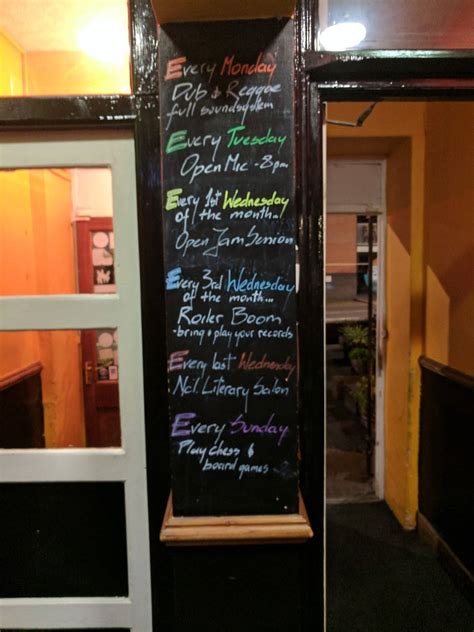 Every Monday
Dub & Reggae
full soundsystem
Every Tuesday
Open Mic - 8pm
Every 1st Wednesday
of the month...
Open Jam Session
Every 3rd Wednesday
of the month...
Boom
- bring & play your records
Every last Wednesday
Literary Salon
Every Sunday
Play chess &
board games